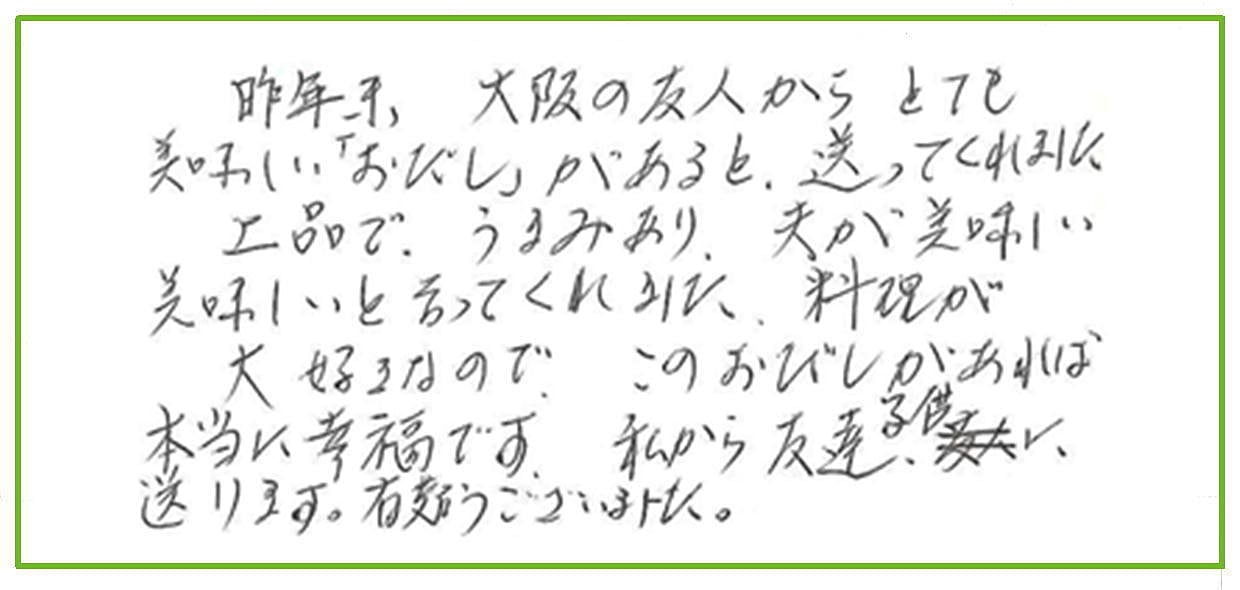 昨年末、大阪の友人からとても
美味しい「おだし」があると、送ってくれました
上品で、うまみあり、夫が美味しい
美味しいと言ってくれました、料理が
大好きなので、このおだしがあれば
本当に幸福です。私から友達、子供に、
送ります。有難うございました。